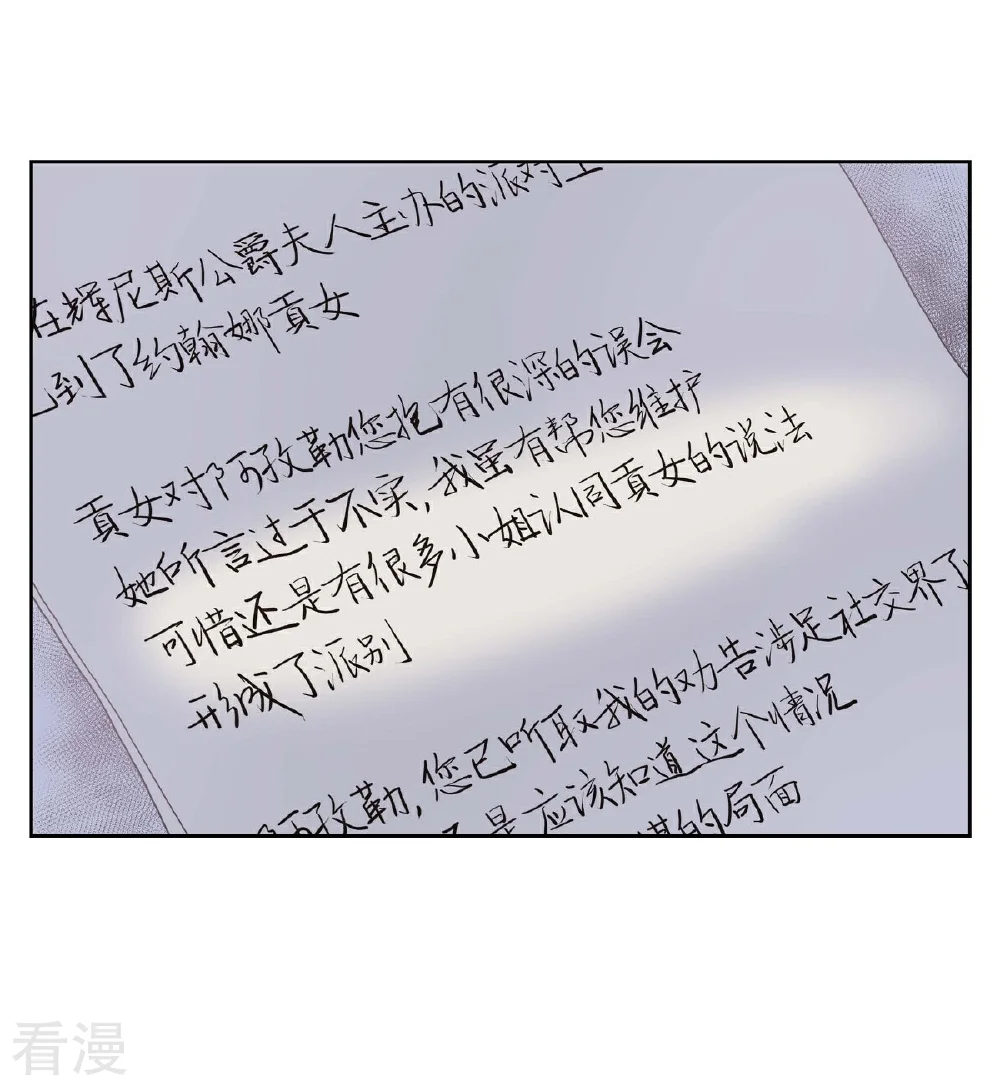 在辉尼斯公爵夫人主办的派对上
到了约翰娜贡女
贡女对阿孜勒您抱有很深的误会
她所言过于不实,我虽有帮您维护
可惜还是有很多小姐认同贡女的说法
形成了派别
阿孜勒,您已听取我的劝告涉足社交界了
是应该知道这个情况
的局面
看漫